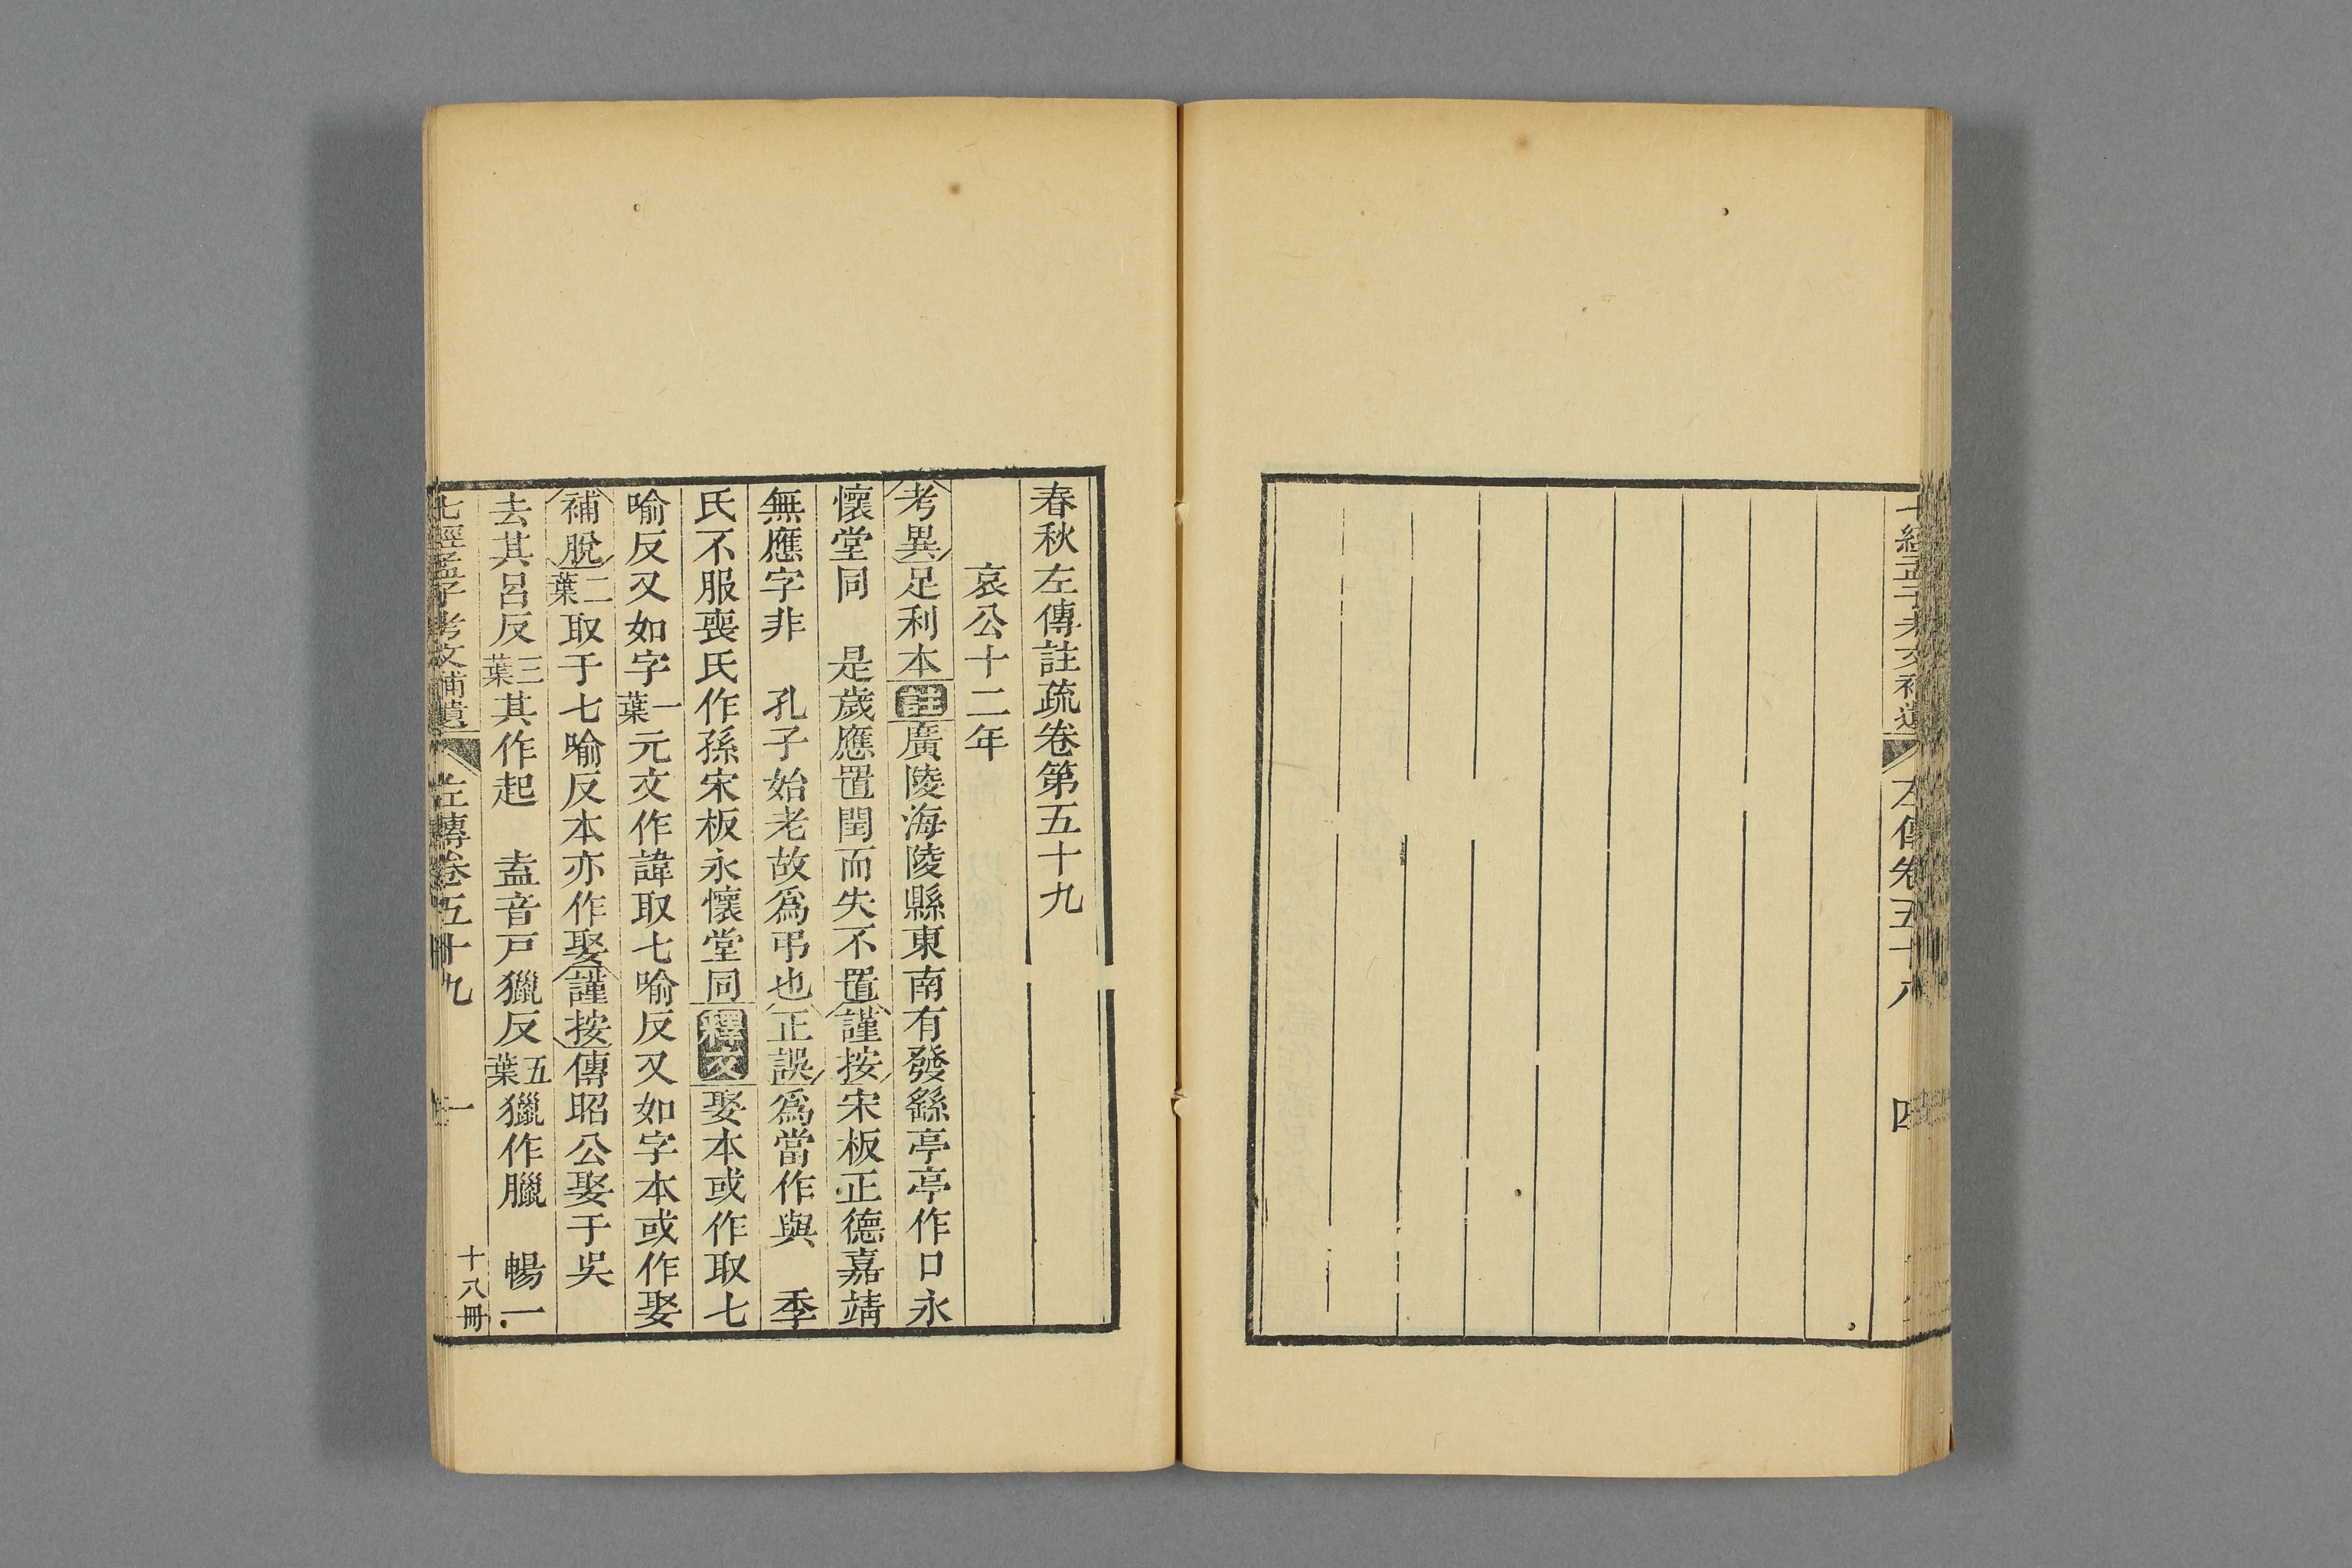 七經孟子考文補遺 左傳卷五十八 四
春秋左傳註疏卷第五十九
哀公十二年
考異足利本註廣陵海陵縣東南有發繇亭亭作口永
懷堂同 是歲應置閏而失不置謹按宋板正德嘉靖
無應字非 孔子始老故爲弔也正誤爲當作與 季
氏不服喪氏作孫宋板永懷堂同釋文娶本或作取七
喻反又如字一葉元文作諱取七喻反又如字本或作娶
補脫二葉取于七喻反本亦作娶謹按傳昭公娶于吳
去其呂反三葉其作起 盍音戸獵反五葉獵作臘 暢一
七經孟子考文補遺 左傳卷五十九 一 十八冊